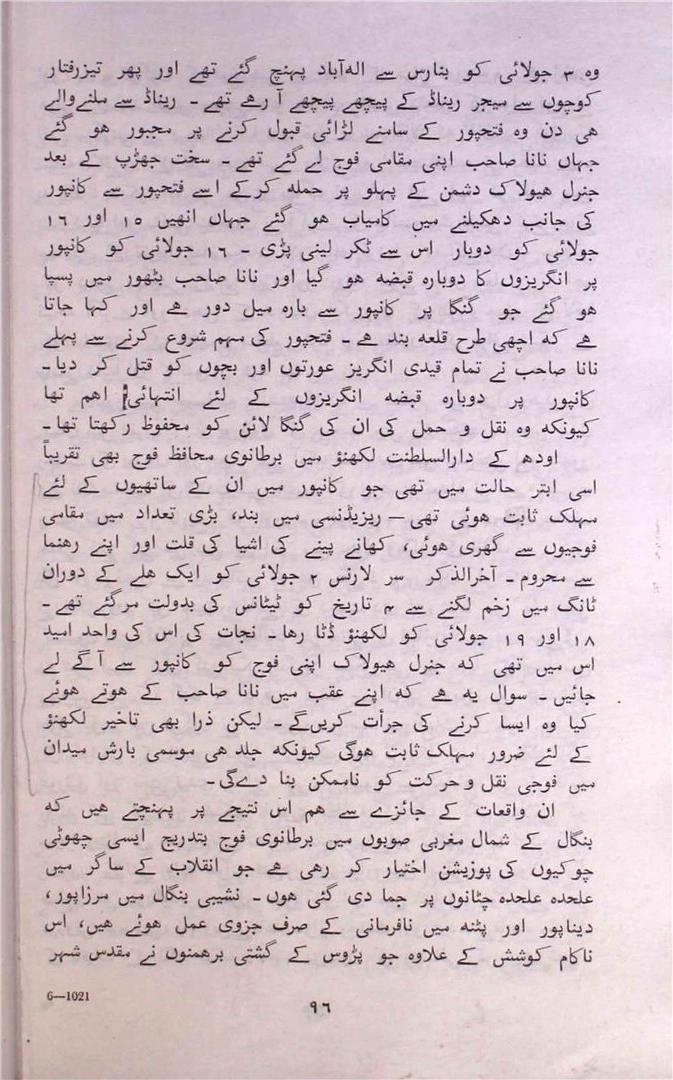 وہ ۳ جولائی کو بنارس سے الہ‌آباد پہنچ گئے تھے اور پھر تیزرفتار
کوچوں سے میجر رینالڈ کے پیچھے پیچھے آ رہے تھے ۔ رینالڈ سے ملنےوالے
ہی دن وہ فتحپور کے سامنے لڑائی قبول کرنے پر مجبور ہو گئے
جہاں نانا صاحب اپنی مقامی فوج لےگئے تھے ۔ سخت جھڑپ کے بعد
جنرل ہیولاک دشمن کے پہلو پر حملہ کرکے اسے فتحپور سے کانپور
کی جانب دھکیلنے میں کامیاب ہو گئے جہاں انھیں ۱۵ اور ۱۶
جولائی کو دوبار اس سے ٹکر لینی پڑی ۔ ۱۶ جولائی کو کانپور
پر انگریزوں کا دوبارہ قبضہ ہو گیا اور نانا صاحب بٹھور میں پسپا
ہو گئے جو گنگا پر کانپور سے بارہ میل دور ہے اور کہا جاتا
ہے کہ اچھی طرح قلعہ بند ہے ۔ فتحپور کی مہم شروع کرنے سے پہلے
نانا صاحب نے تمام قیدی انگریز عورتوں اور بچوں کو قتل کر دیا ۔
کانپور پر دوبارہ قبضہ انگریزوں کے لئے انتہائی اہم تھا
کیونکہ وہ نقل و حمل کی ان کی گنگا لائن کو محفوظ رکھتا تھا ۔
اودھ کے دارالسلطنت لکھنؤ میں برطانوی محافظ فوج بھی تقریباً
اسی ابتر حالت میں تھی جو کانپور میں ان کے ساتھیوں کے لئے
مہلک ثابت ہوئی تھی — ریزیڈنسی میں بند، بڑی تعداد میں مقامی
فوجیوں سے گھری ہوئی، کھانے پینے کی اشیا کی قلت اور اپنے رہنما
سے محروم ۔ آخرالذکر سر لارنس ۲ جولائی کو ایک ہلے کے دوران
ٹانگ میں زخم لگنے سے ۴ تاریخ کو ٹیٹانس کی بدولت مرگئے تھے ۔
۱۸ اور ۱۹ جولائی کو لکھنؤ ڈٹا رہا ۔ نجات کی اس کی واحد امید
اس میں تھی کہ جنرل ہیولاک اپنی فوج کو کانپور سے آگے لے
جائیں ۔ سوال یہ ہے کہ اپنے عقب میں نانا صاحب کے ہوتے ہوئے
کیا وہ ایسا کرنے کی جرأت کریں‌گے ۔ لیکن ذرا بھی تاخیر لکھنؤ
کے لئے ضرور مہلک ثابت ہوگی کیونکہ جلد ہی موسمی بارش میدان
میں فوجی نقل و حرکت کو ناممکن بنا دےگی ۔
ان واقعات کے جائزے سے ہم اس نتیجے پر پہنچتے ہیں کہ
بنگال کے شمال مغربی صوبوں میں برطانوی فوج بتدریج ایسی چھوٹی
چوکیوں کی پوزیشن اختیار کر رہی ہے جو انقلاب کے ساگر میں
علحدہ علحدہ چٹانوں پر جما دی گئی ہوں ۔ نشیبی بنگال میں مرزاپور،
دیناپور اور پٹنہ میں نافرمانی کے صرف جزوی عمل ہوئے ہیں، اس
ناکام کوشش کے علاوہ جو پڑوس کے گشتی برہمنوں نے مقدس شہر
6—1021
۹۶